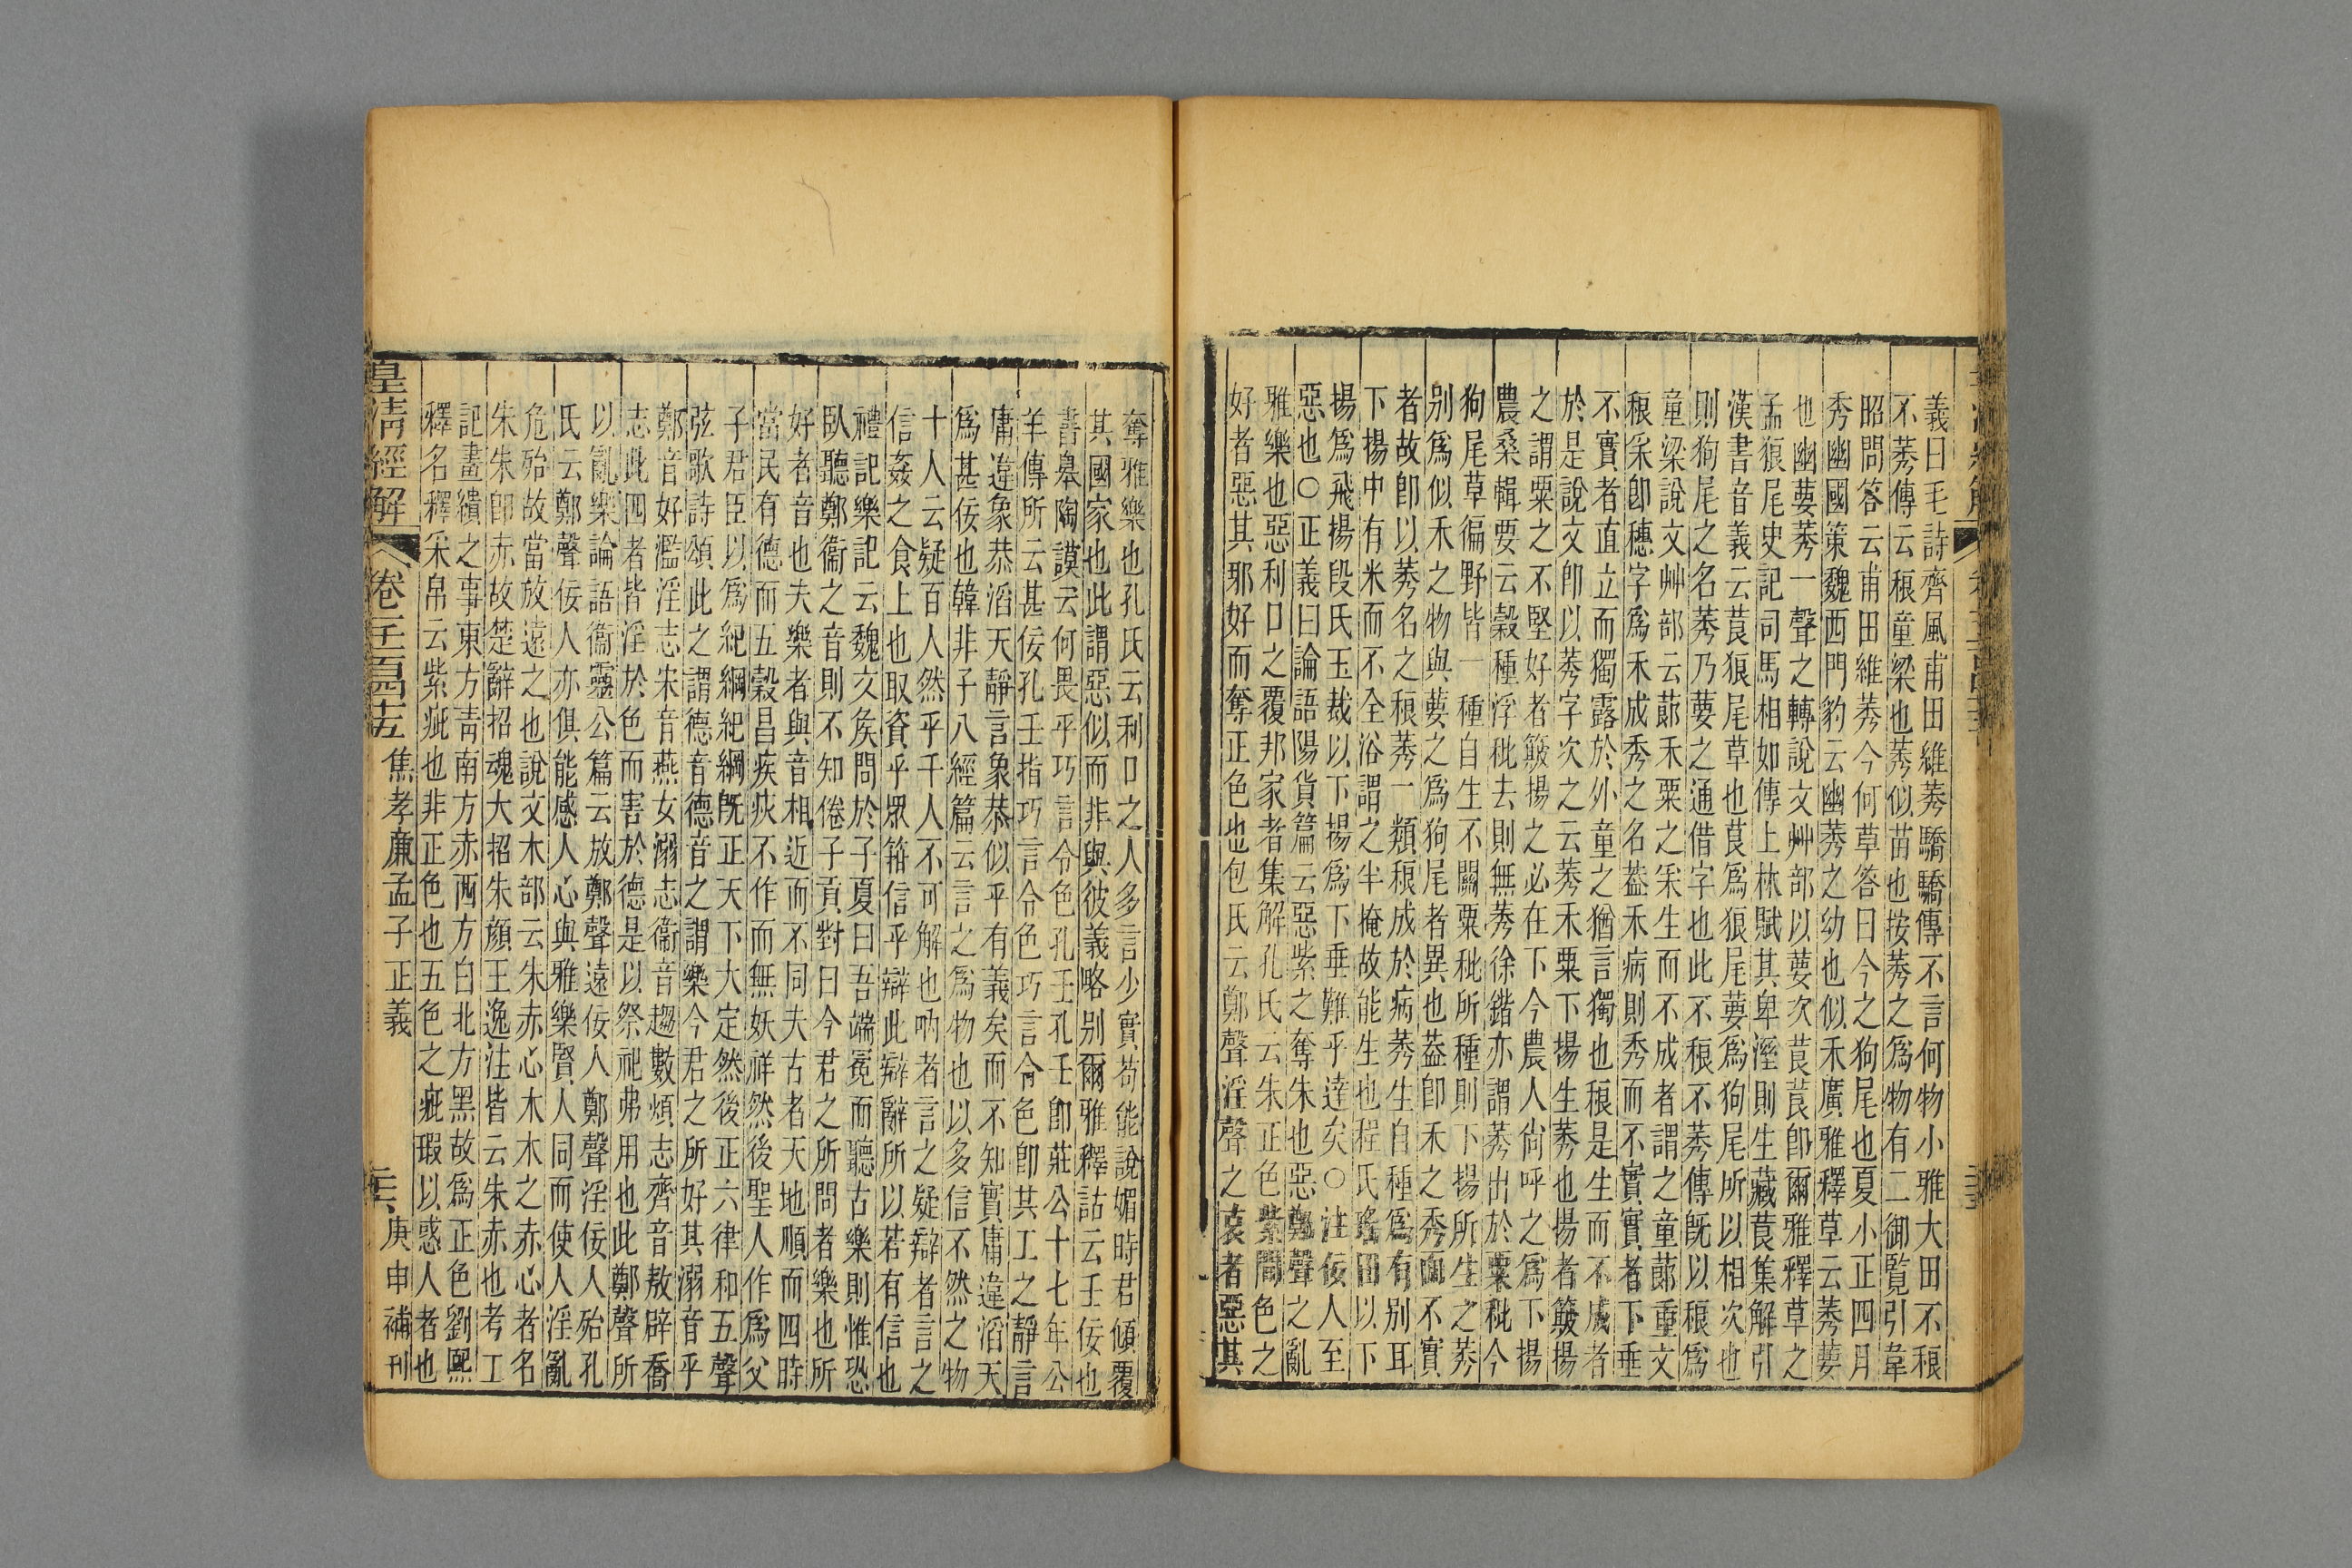 義曰毛詩齊風甫田維莠驕驕傳不言何物小雅大田不稂
不莠傳云稂童梁也莠似苗也按莠之爲物有二御覧引韋
昭問答云甫田維莠今何草答曰今之狗尾也夏小正四月
秀幽國策魏西門豹云幽莠之幼也似禾廣雅釋草云莠葽
也幽葽莠一聲之轉說文艸部以葽次莨莨卽爾雅釋草之
孟狼尾史記司馬相如傳上林賦其卑溼則生藏莨集解引
漢書音義云莨狼尾草也莨爲狼尾葽爲狗尾所以相次也
則狗尾之名莠乃葽之通借字也此不稂不莠傳旣以稂爲
童梁說文艸部云蓈禾粟之采生而不成者謂之童蓈重文
稂采卽穗字爲禾成秀之名葢禾病則秀而不實實者下垂
不實者直立而獨露於外童之猶言獨也稂是生而不成者
於是說文卽以莠字次之云莠禾粟下揚生莠也揚者簸揚
之謂粟之不堅好者簸揚之必在下今農人尙呼之爲下揚
農桑輯要云穀種浮秕去則無莠徐鍇亦謂莠出於粟秕今
狗尾草徧野皆一種自生不關粟秕所種則下揚所生之莠
別爲似禾之物與葽之爲狗尾者異也葢卽禾之秀而不實
者故卽以莠名之稂莠一類稂成於病莠生自種爲有别耳
下揚中有米而不全浴謂之半掩故能生也程氏瑤田以下
揚爲飛揚段氏玉裁以下揚爲下垂難乎達矣○注佞人至
惡也○正義曰論語陽貨篇云惡紫之奪朱也惡鄭聲之亂
雅樂也惡利口之覆邦家者集解孔氏云朱正色紫閒色之
好者惡其耶好而奪正色也包氏云鄭聲淫聲之哀者惡其
奪雅樂也孔氏云利口之人多言少實苟能說媚時君傾覆
其國家也此謂惡似而非與彼義略别爾雅釋詁云壬佞也
書皋陶謨云何畏乎巧言令色孔壬孔壬卽莊公十七年公
羊傳所云甚佞孔壬指巧言令色巧言令色卽其工之靜言
庸違象恭滔天靜言象恭似乎有義矣而不知實庸違滔天
爲甚佞也韓非子八經篇云言之爲物也以多信不然之物
十人云疑百人然乎千人不可解也吶者言之疑辯者言之
信姦之食上也取資乎眾籍信乎辯此辯辭所以若有信也
禮記樂記云魏文侯問於子夏曰吾端冕而聽古樂則惟恐
臥聽鄭衞之音則不知倦子貢對曰今君之所問者樂也所
好者音也夫樂者與音相近而不同夫古者天地順而四時
當民有德而五穀昌疾疢不作而無妖祥然後聖人作爲父
子君臣以爲紀綱紀綱旣正天下大定然後正六律和五聲
弦歌詩頌此之謂德音德音之謂樂今君之所好其溺音乎
鄭音好濫淫志宋音燕女溺志衞音趨數煩志齊音敖辟喬
志此四者皆淫於色而害於德是以祭祀弗用也此鄭聲所
以亂樂論語衞靈公篇云放鄭聲遠佞人鄭聲淫佞人殆孔
氏云鄭聲佞人亦俱能感人心與雅樂賢人同而使人淫亂
危殆故當放遠之也說文木部云朱赤心木木之赤心者名
朱朱卽赤故楚辭招魂大招朱顏王逸注皆云朱赤也考工
記畫繢之事東方青南方赤西方白北方黑故爲正色劉熙
釋名釋采帛云紫疵也非正色也五色之疵瑕以惑人者也
皇清經解 卷千一百四十五 焦孝廉孟子正義 庚申補刊